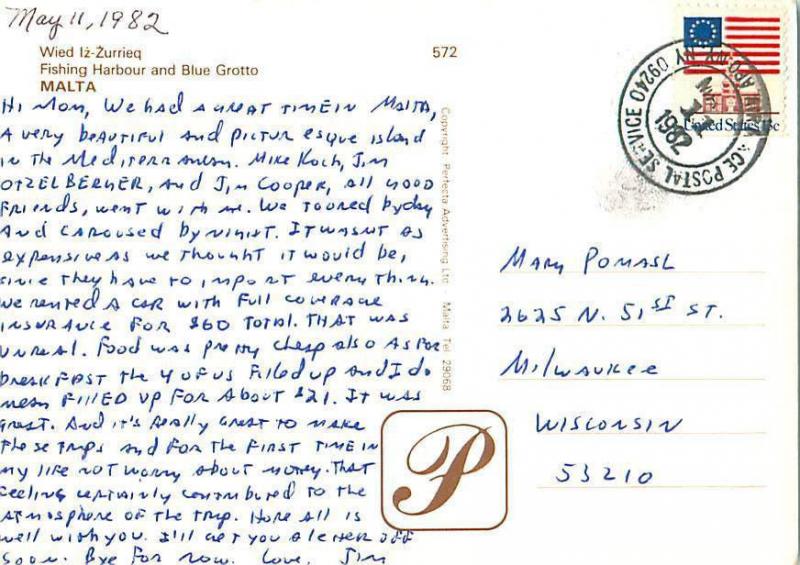 May 11, 1982
Wied Iż-Żurrieq
Fishing Harbour and Blue Grotto
MALTA
572
Hi Mom, We had a great time in Malta,
A very beautiful and picturesque island
in the Mediterranean. Mike Koch, Jim
Otzelberger, and Jim Cooper, all good
friends, went with me. We toured by day
and caroused by night. It wasn't as
expensive as we thought it would be,
since they have to import everything.
We rented a car with full coverage
insurance for $60 total. That was
unreal. Food was pretty cheap also as for
breakfast the 4 of us filled up and I do
mean filled up for about $21. It was
great. And it's really great to make
these trips and for the first time in
my life not worry about money. That
feeling certainly contributed to the
atmosphere of the trip. Hope all is
well with you. I'll get you a letter off
soon. Bye for now. Love, Jim
Copyright Perfecta Advertising Ltd. - Malta Tel 29068
P
United States 15c
POSTAL SERVICE
APO NY 09240
MAY
1982
Mary Pomasl
2625 N. 51st St.
Milwaukee
Wisconsin
53210